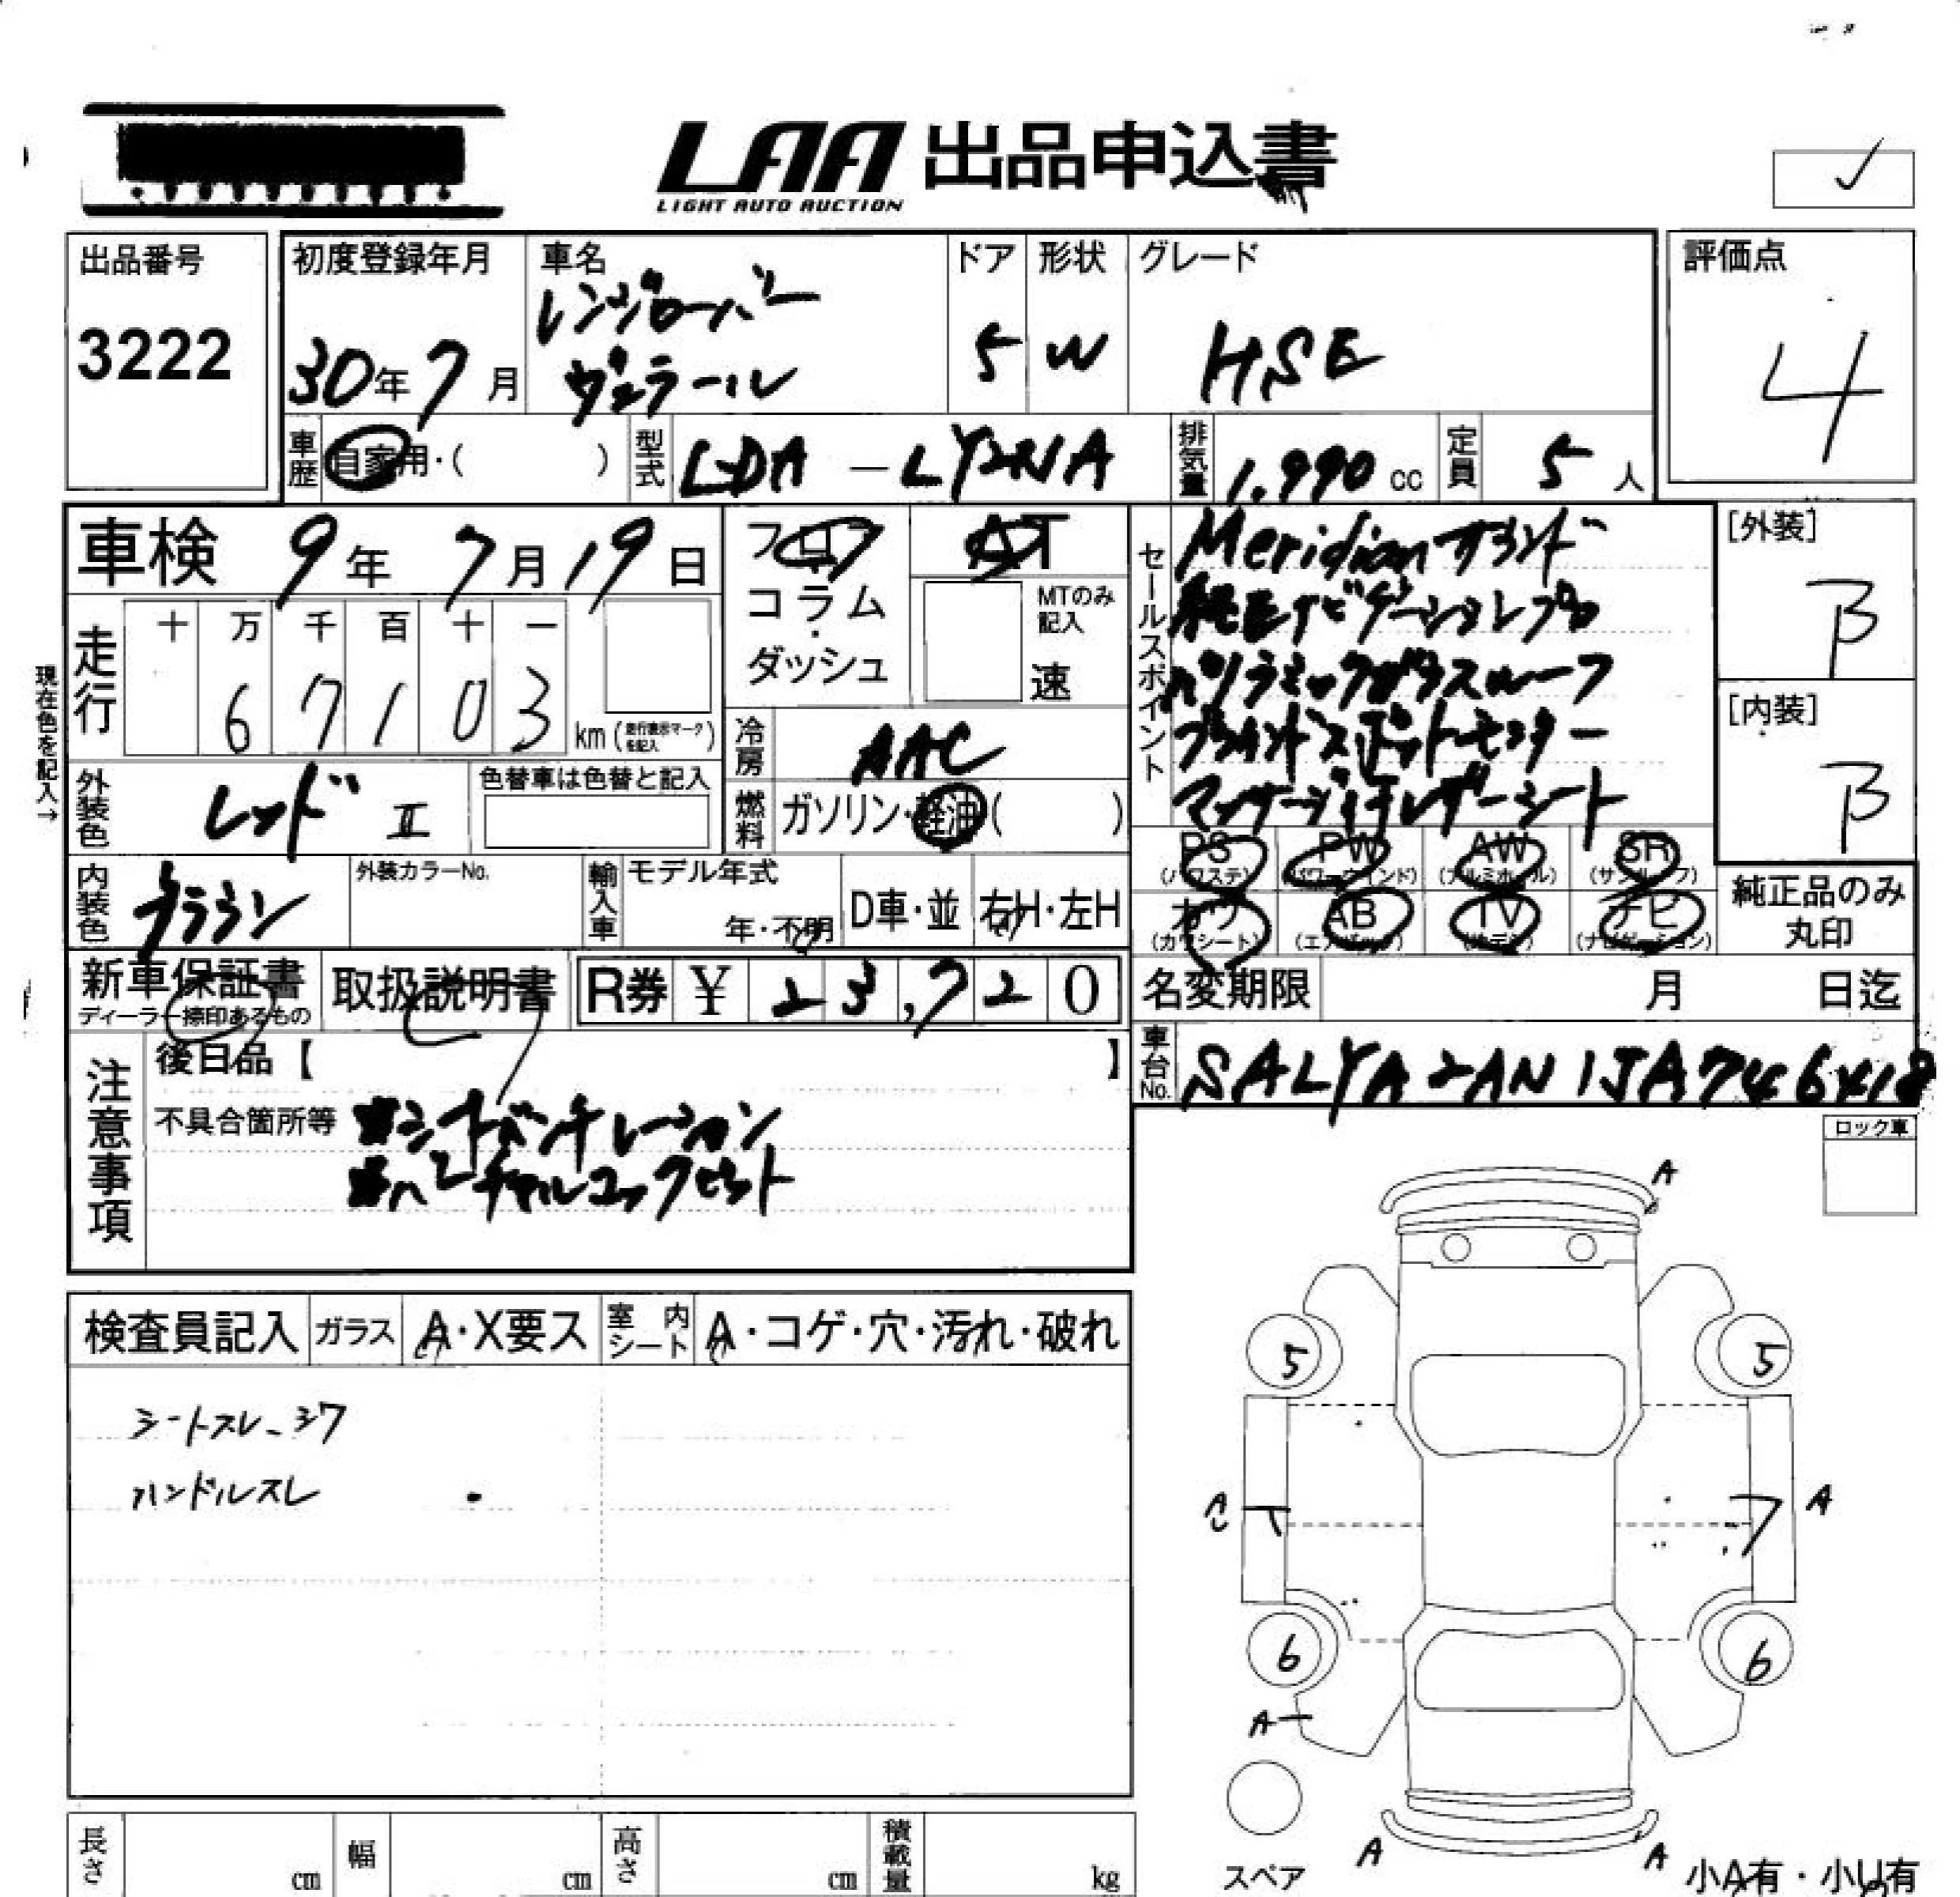 LAA 出品申込書
LIGHT AUTO AUCTION
✓
出品番号
3222
初度登録年月
30年7月
車名
レンジローバー
ヴェラール
ドア
5
形状
W
グレード
HSE
評価点
4
車歴
自家用・( )
型式
LDA-LY2NA
排気量
1.990cc
定員
5人
車検 9年7月19日
フロア
コラム
・
ダッシュ
AT
MTのみ
記入
速
セールスポイント
Meridianサウンド
純正ナビゲーションレプロ
パノラミックガラスルーフ
ブラインドスポットモニター
マッサージ付レザーシート
[外装]
B
[内装]
B
現在色を記入→
走行
十 万 千 百 十 一
6 7 1 0 3
km (走行表示マークを記入)
冷房
AAC
燃料
ガソリン・軽油( )
外装色
レッド II
色替車は色替と記入
内装色
ブラウン
外装カラーNo.
輸入車
モデル年式
年・不明
D車・並
右H・左H
PS
(パワステ)
PW
(パワーウインド)
AW
(アルミホイール)
SR
(サンルーフ)
カワ
(カワシート)
AB
(エアバッグ)
TV
ナビ
(ナビゲーション)
純正品のみ
丸印
新車保証書
ディーラー捺印あるもの
取扱説明書
R券 ¥ 23,720
名変期限 月 日迄
注意事項
後日品【 】
不具合箇所等
シートベンチレーション
バーチャルコックピット
車台No.
SALYA2AN1JA746418
ロック車
検査員記入
ガラス
A・X要ス
室内シート
A・コゲ・穴・汚れ・破れ
シートスレ、シワ
ハンドルスレ
A
5
5
A
A
6
6
A
スペア
A
A
小A有・小U有
長さ
cm
幅
cm
高さ
cm
積載量
kg